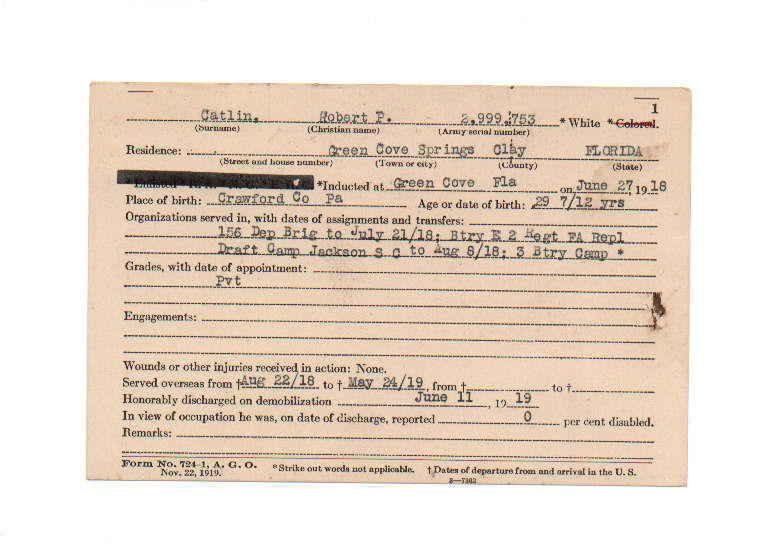 1
Catlin, Robert P. 2,999,753 *White *Colored.
(Surname) (Christian name) (Army serial number)
Residence: Green Cove Springs Clay FLORIDA
(Street and house number) (Town or city) (County) (State)
*Inducted at Green Cove Fla on June 27, 1918
Place of birth: Crawford Co Pa Age or date of birth: 29 7/12 yrs
Organizations served in, with dates of assignments and transfers:
156 Dep Brig to July 21/18; Btry E 2 Regt FA Repl
Draft Camp Jackson S C to Aug 8/18; 3 Btry Camp *
Grades, with date of appointment:
Pvt
Engagements:
Wounds or other injuries received in action: None.
Served overseas from †Aug 22/18 to † May 24/19, from † to †
Honorably discharged on demobilization June 11, 19 19
In view of occupation he was, on date of discharge, reported 0 per cent disabled.
Remarks:
Form No. 724-1, A. G. O. *Strike out words not applicable. †Dates of departure from and arrival in the U. S.
Nov. 22, 1919.
3—7302